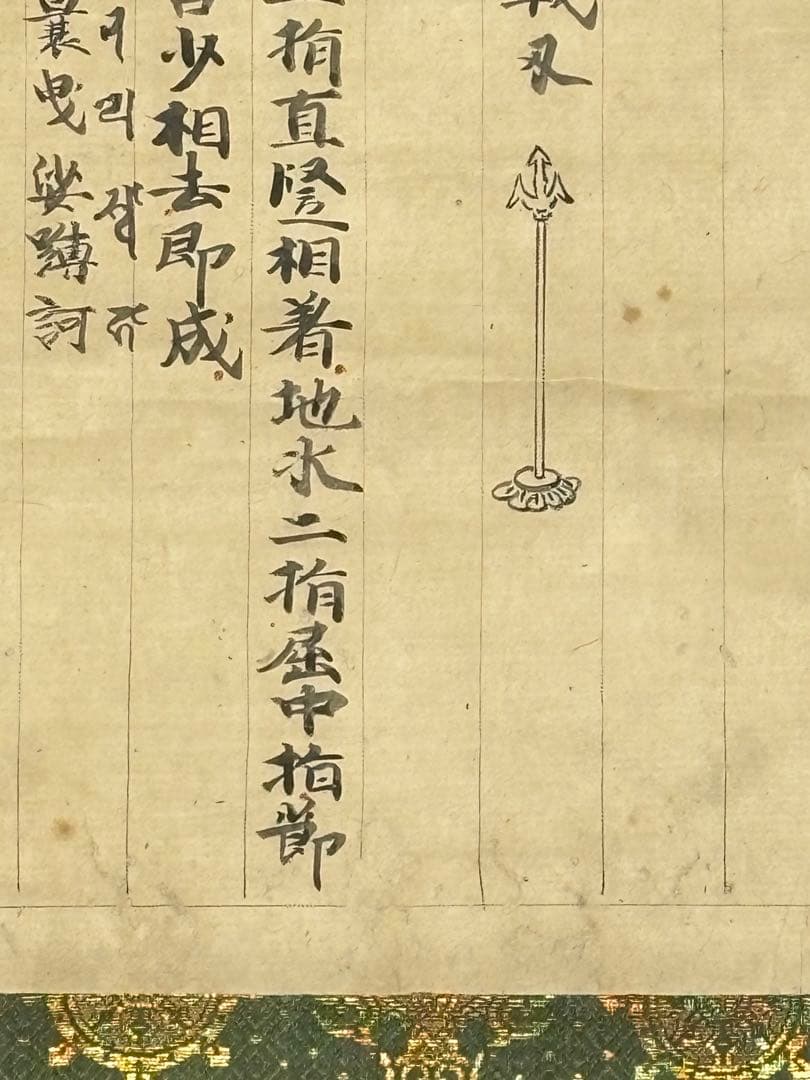 戟叉
指直竪相着地水二指屈中指節
少相去即成
曩曳娑嚩訶